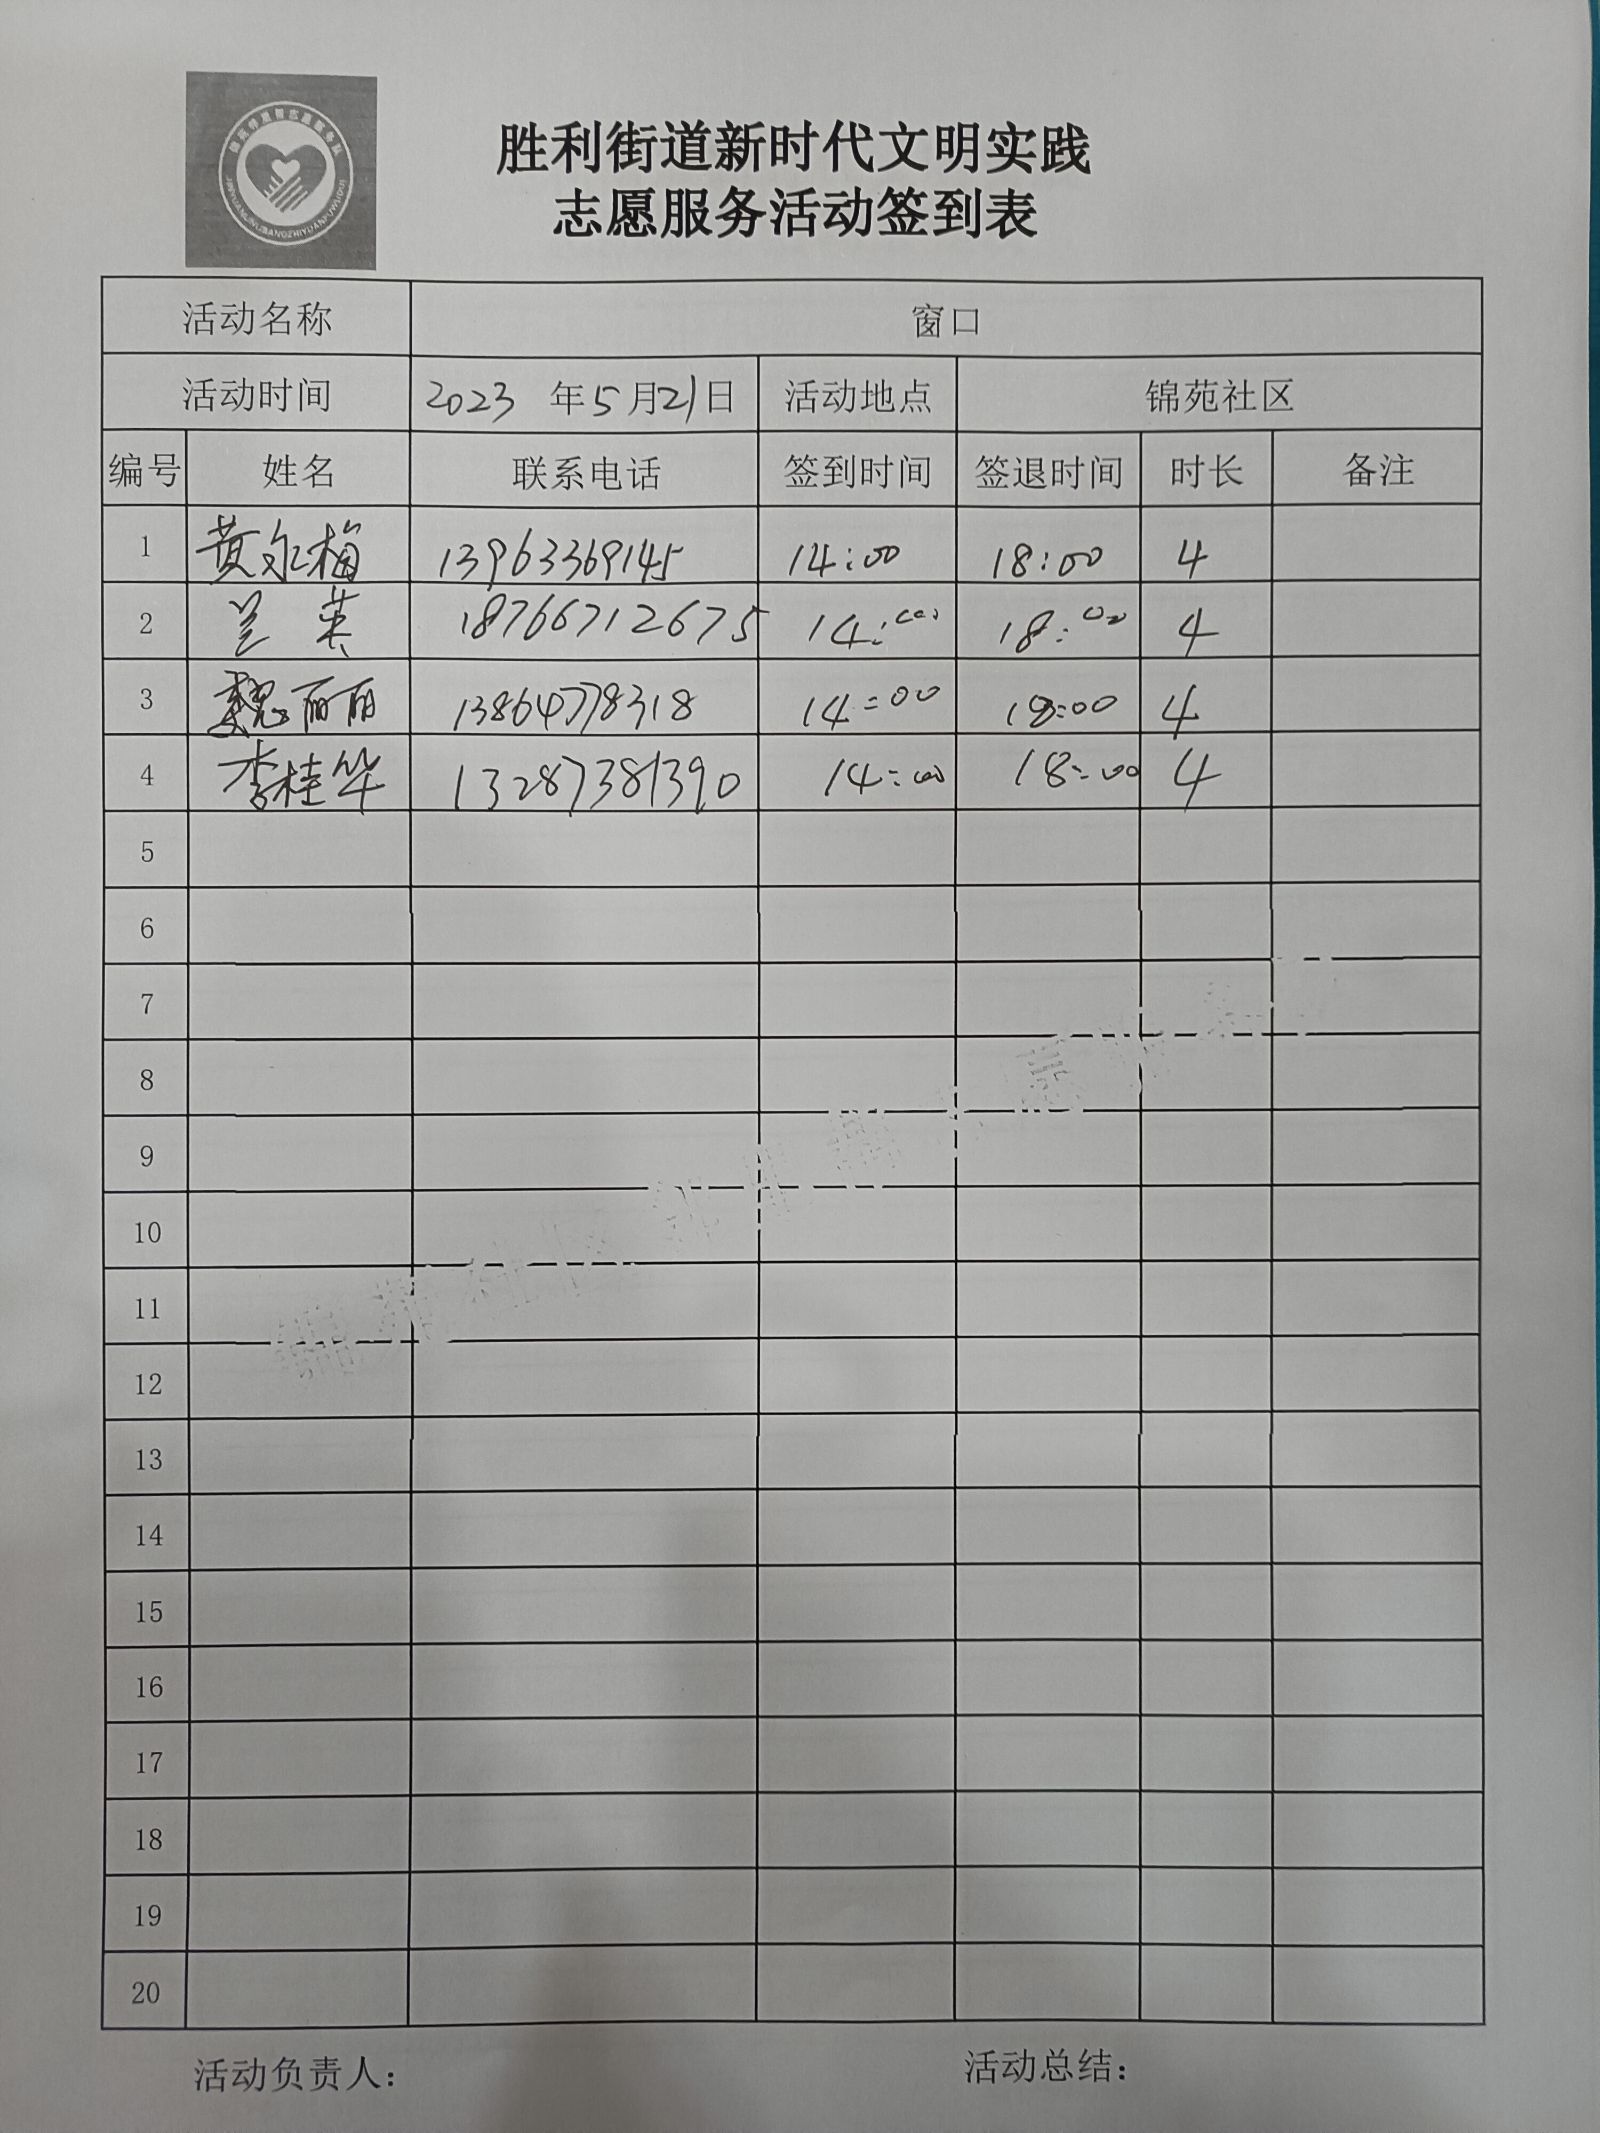 胜利街道新时代文明实践
志愿服务活动签到表
活动名称 窗口
活动时间 2023 年5月21日 活动地点 锦苑社区
编号 姓名 联系电话 签到时间 签退时间 时长 备注
1 黄永梅 13963369145 14:00 18:00 4
2 兰英 18766712675 14:00 18:00 4
3 魏丽丽 13864778318 14:00 18:00 4
4 李桂华 13287381390 14:00 18:00 4
5
6
7
8
9
10
11
12
13
14
15
16
17
18
19
20
活动负责人: 活动总结: